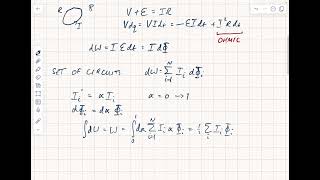 R I B V + E = IR
Vdq = VIdt = -EIdt + I²Rdt
OHMIC
dW = IEdt = IdΦ
SET OF CIRCUITS dW = Σ Iᵢ dΦᵢ i=1 N
Iᵢ' = αIᵢ α = 0 → 1
dΦᵢ = dαΦᵢ
∫dU = W = ∫₀¹ dα Σ Iᵢ α Φᵢ = ½ Σ Iᵢ Φᵢ